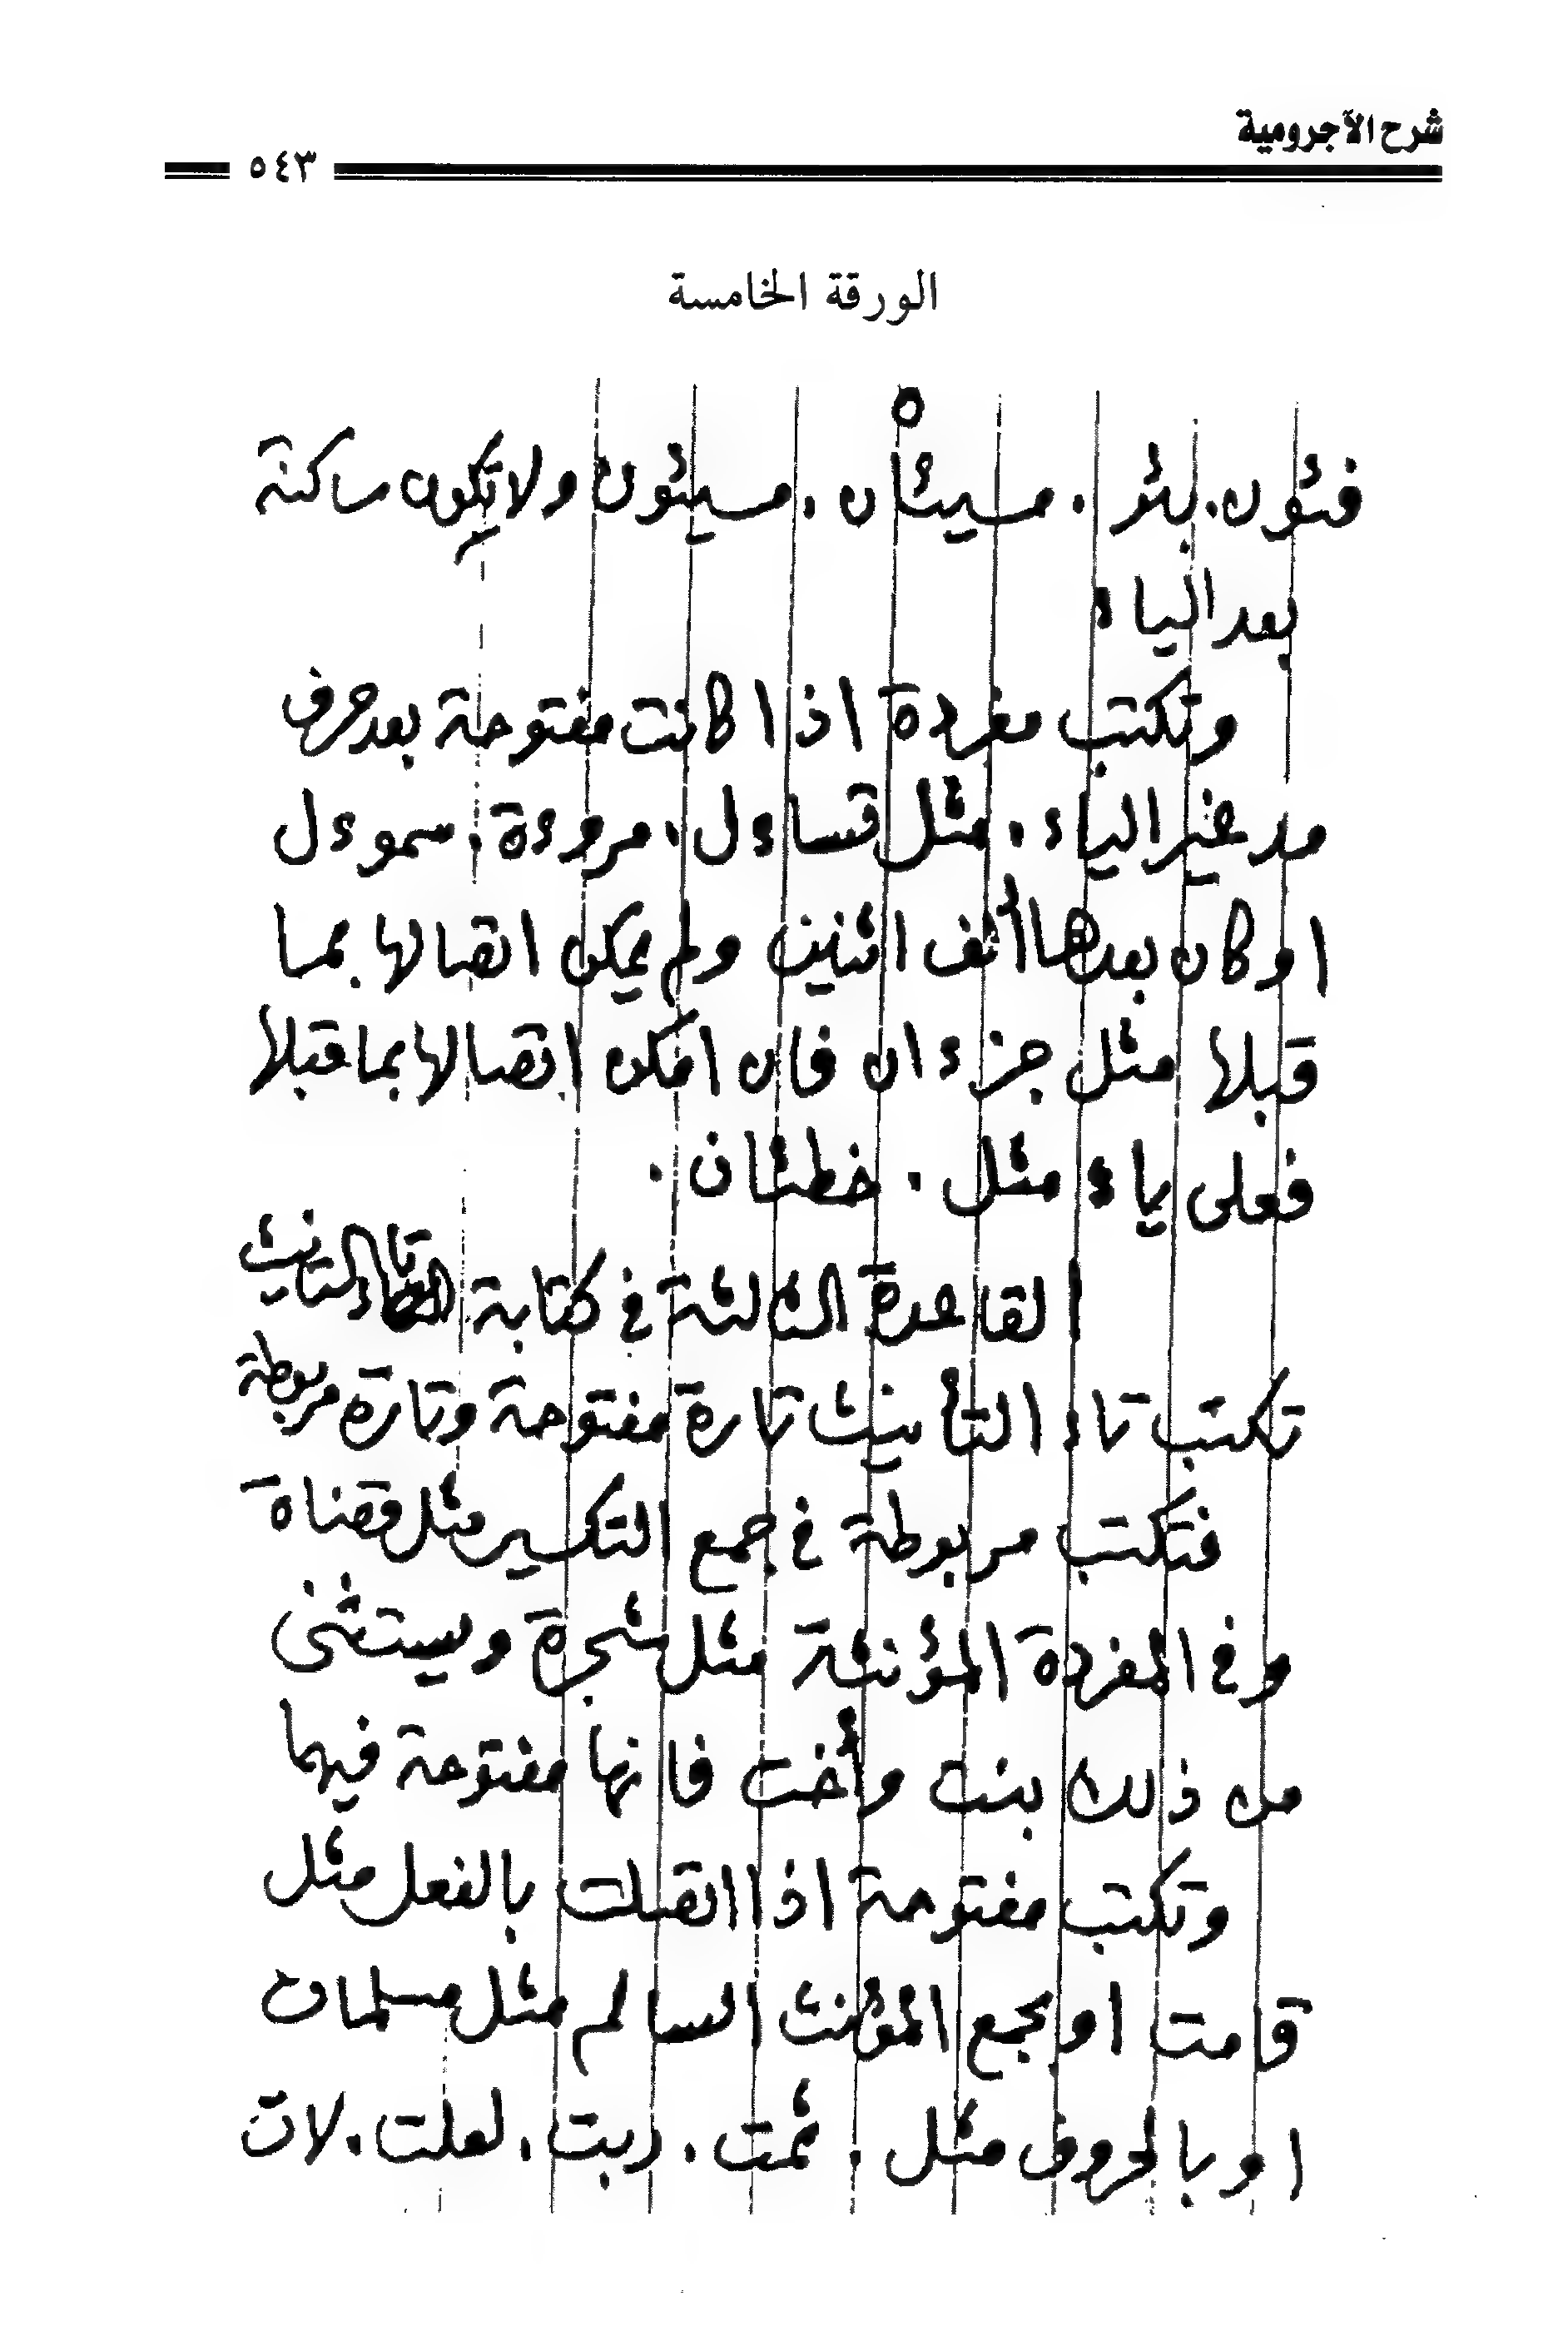 شرح الآجرومية
٥٤٣
الورقة الخامسة
٥
فئون. بئر. مسيئان. مسيئون ولا تكون ساكنة
بعد الياء
وتكتب مفردة اذا كانت مفتوحة بعد حرف
مد غير الياء. مثل تساءل. مروءة. سموءل
او كان بعدها ألف اثنين ولم يمكن اتصالها بما
قبلها مثل جزءان فان امكن اتصالها بما قبلها
فعلى ياء مثل. خطئان.
القاعدة الثالثة في كتابة تاء التانيث
تكتب تاء التأنيث تارة مفتوحة وتارة مربوطة
فتكتب مربوطة في جمع التكسير مثل قضاة
وفي المفردة المؤنثة مثل شجرة ويستثنى
من ذلك بنت وأخت فانها مفتوحة فيهما
وتكتب مفتوحة اذا اتصلت بالفعل مثل
قامت او بجمع المؤنث السالم مثل مسلمات
او بالحروف مثل. ثمت. ربت. لعلت. لات